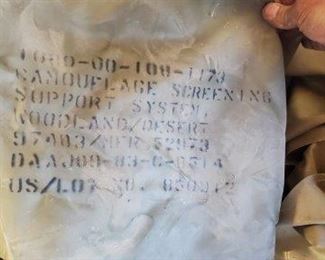 1080-00-108-1173
CAMOUFLAGE SCREENING
SUPPORT SYSTEM,
WOODLAND/DESERT
97403/MFR 52073
DAAJ09-83-C-0514
US/LOT NO.